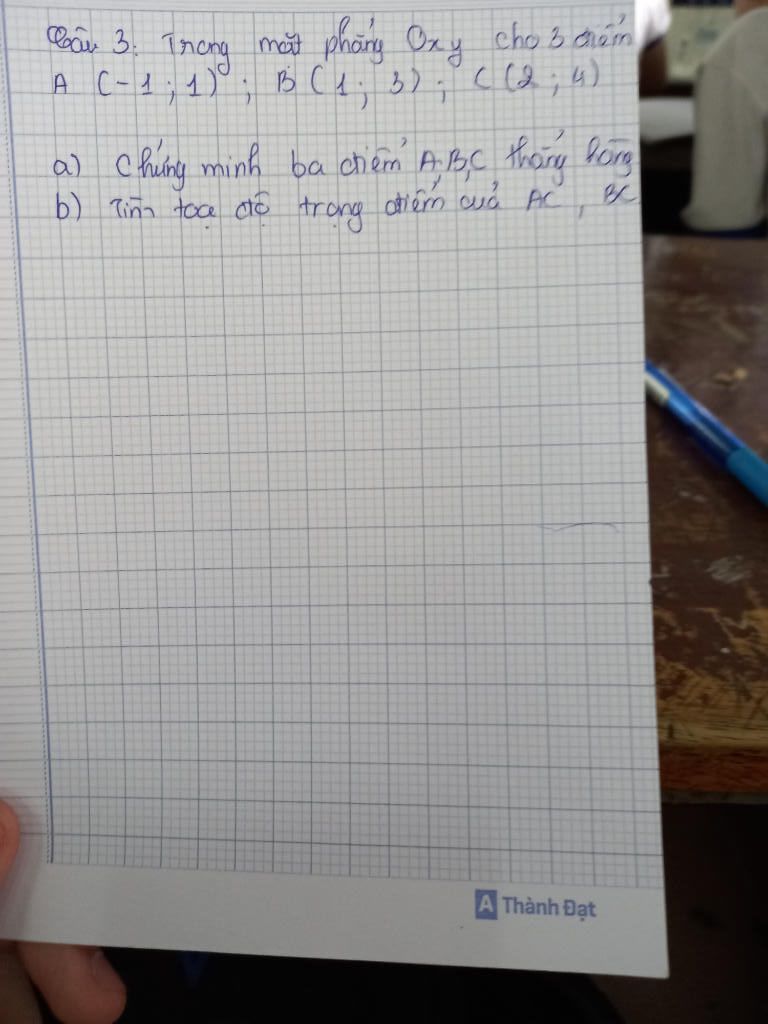 Câu 3: Trong mặt phẳng Oxy cho 3 điểm
A (-1 ; 1) ; B (1 ; 3) ; C (2 ; 4)
a) Chứng minh ba điểm A,B,C thẳng hàng
b) Tìm toạ độ trọng điểm của AC , BC
A Thành Đạt